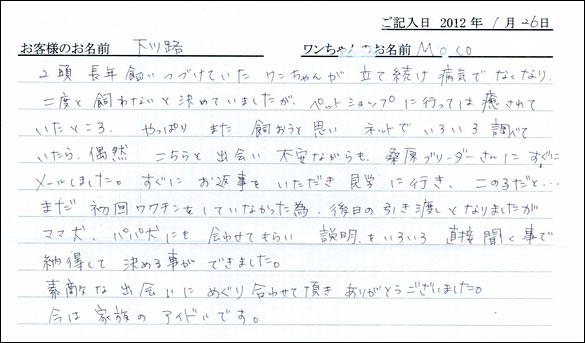 ご記入日 2012 年 1 月 26 日
お客様のお名前 下川路 ワンちゃんのお名前 Moco
2頭 長年飼いつづけていた ワンちゃんが 立て続け 病気で なくなり、
二度と 飼わないと 決めていましたが、ペットショップに行っては 癒されて
いたところ、やっぱり また 飼おうと思い ネットで いろいろ 調べて
いたら、偶然 こちらと 出会い 不安ながらも、桑原ブリーダーさんに すぐに
メールしました。すぐに お返事を いただき 見学に行き、この子だと…
まだ 初回ワクチンをしていなかった為、後日の引き渡しとなりましたが
ママ犬、パパ犬にも 会わせてもらい 説明をいろいろ 直接聞く事で
納得して 決める事が できました。
素敵な 出会いに めぐり合わせて頂き ありがとうございました。
今は 家族の アイドルです。